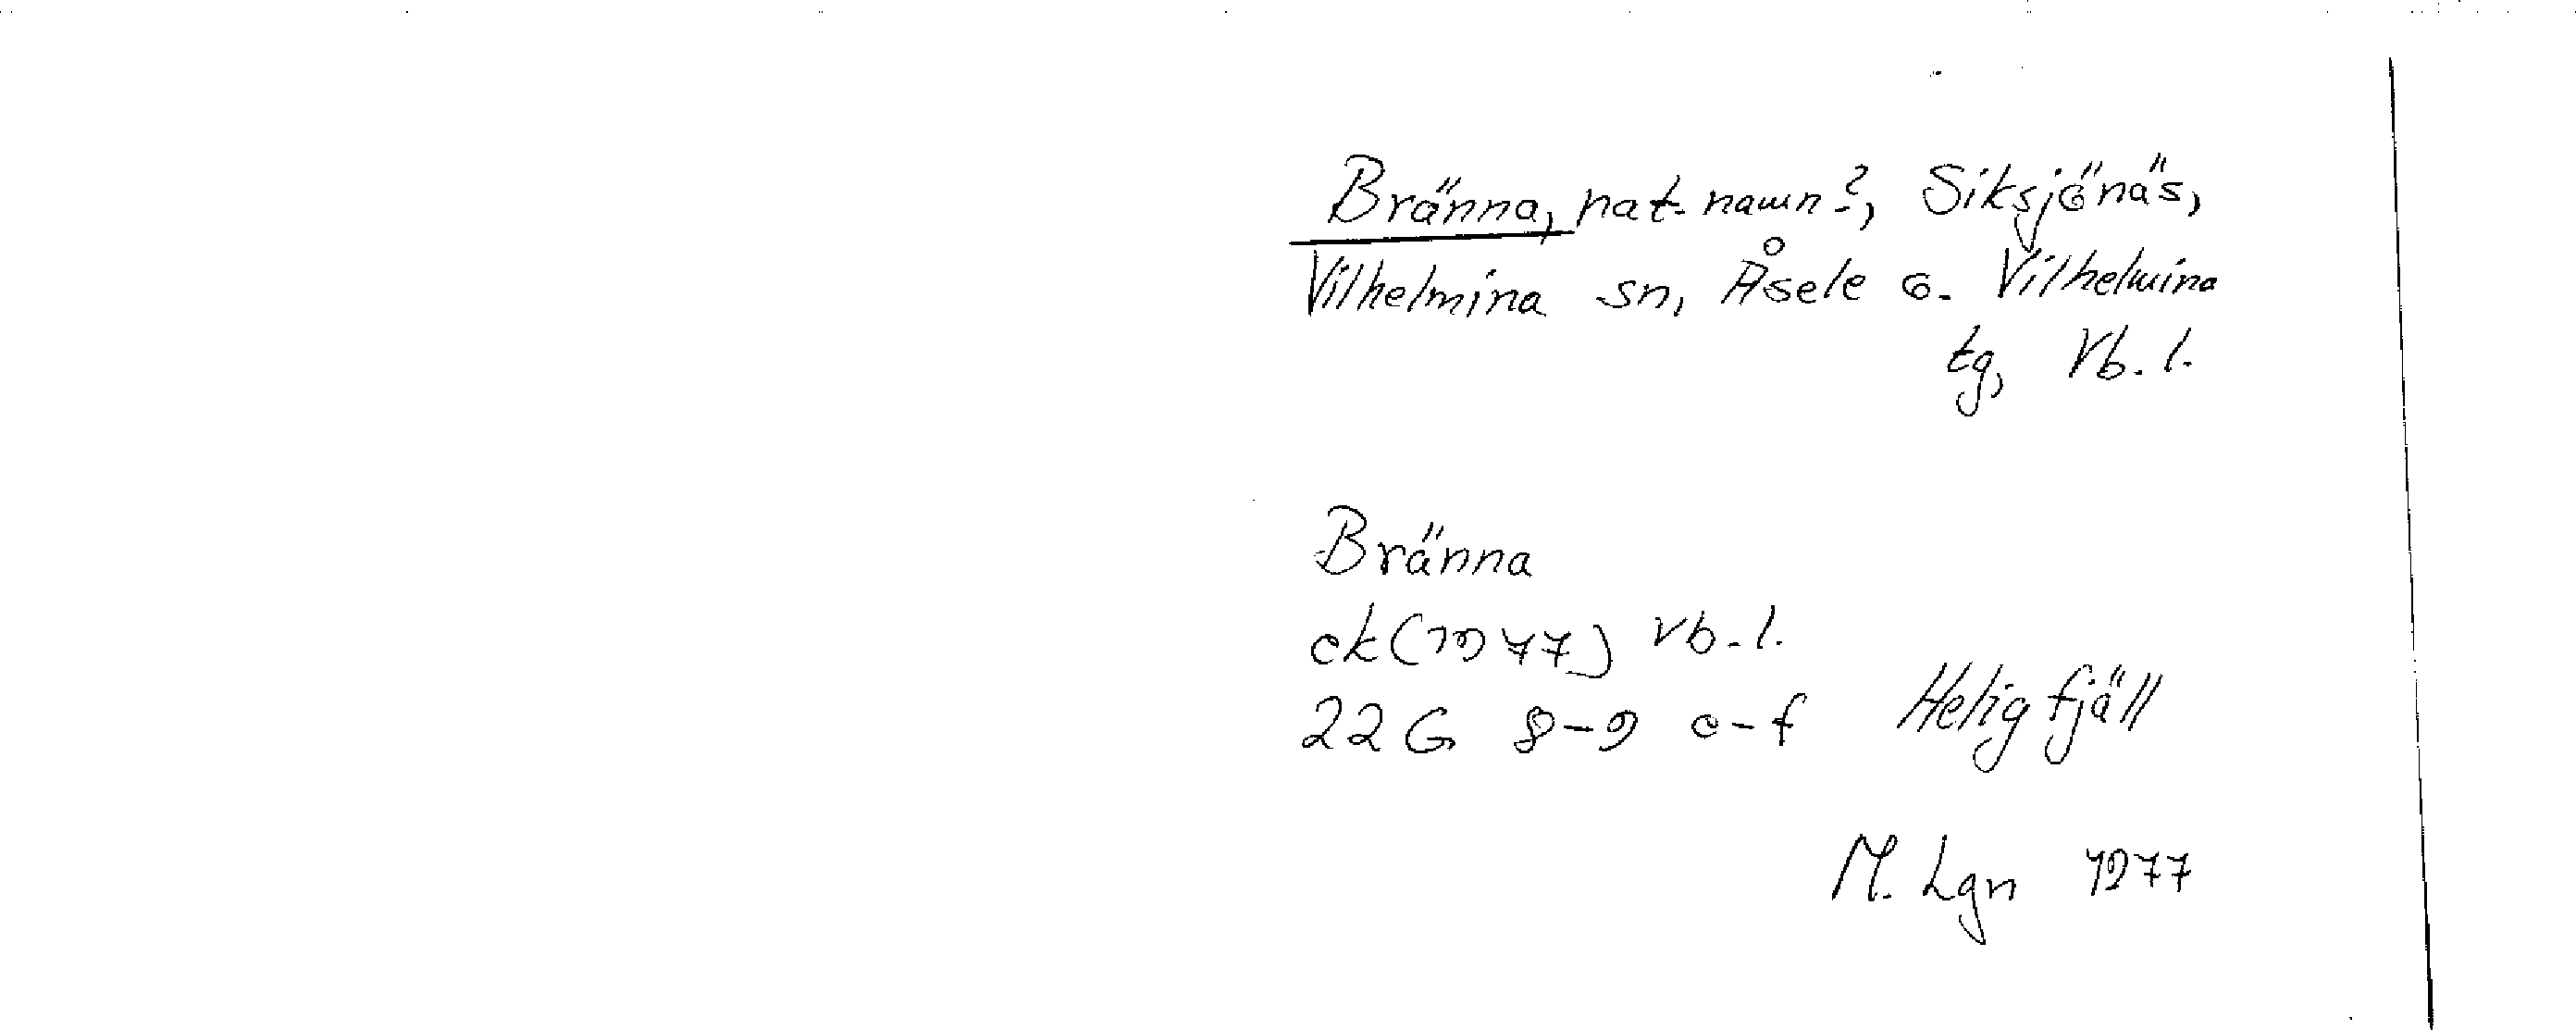 Bränna, nat. namn?, Siksjönäs,
Vilhelmina sn, Åsele o. Vilhelmina
tg, Vb. l.
Bränna
ek (1977) Vb. l.
22 G 8-9 e-f Helig fjäll
M. Lgn 1977